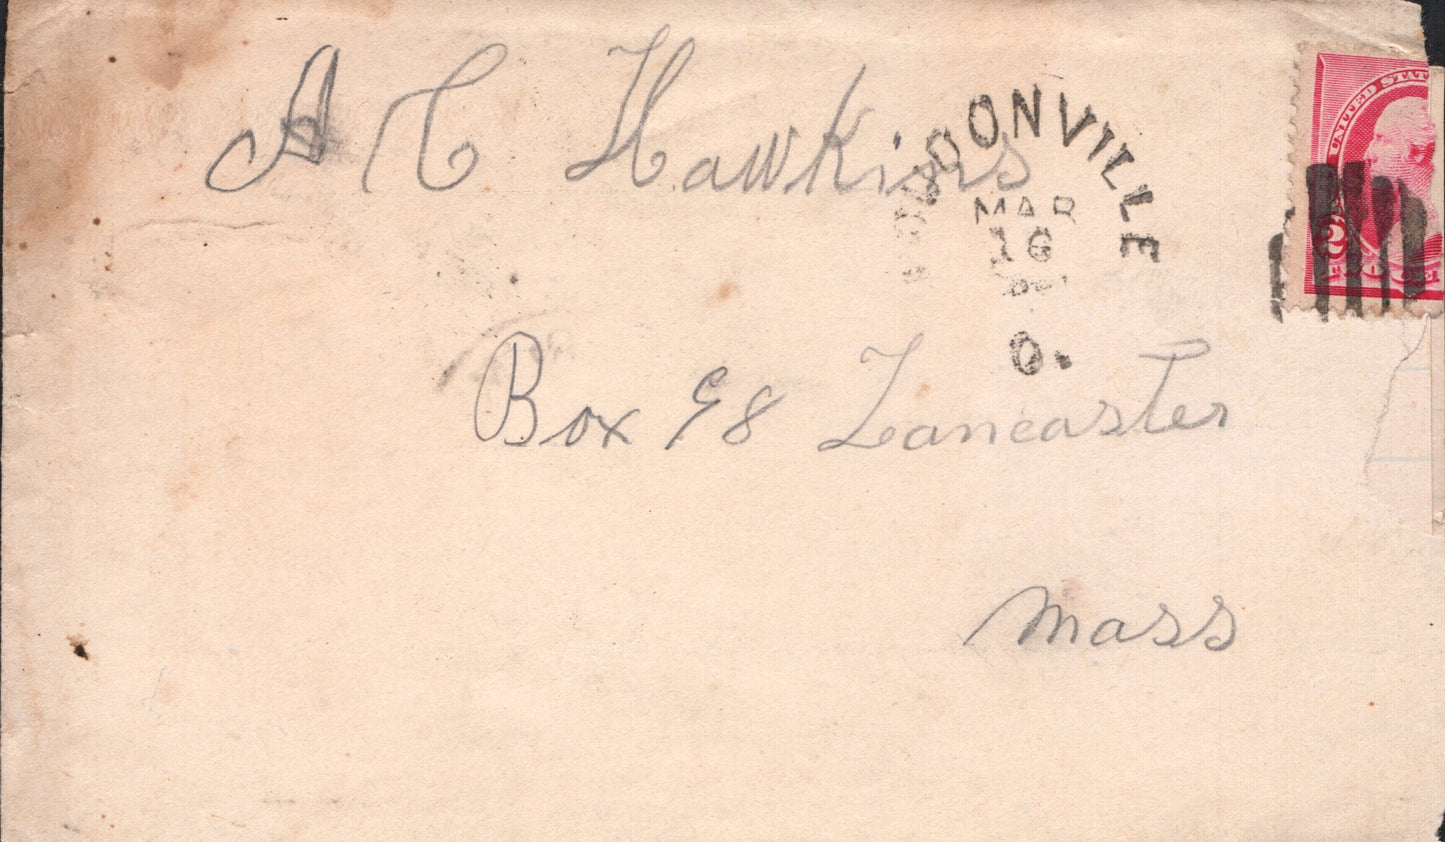 A C Hawkins
LOUDONVILLE
MAR
16
O.
UNITED STAT
2
Box 98 Lancaster
Mass